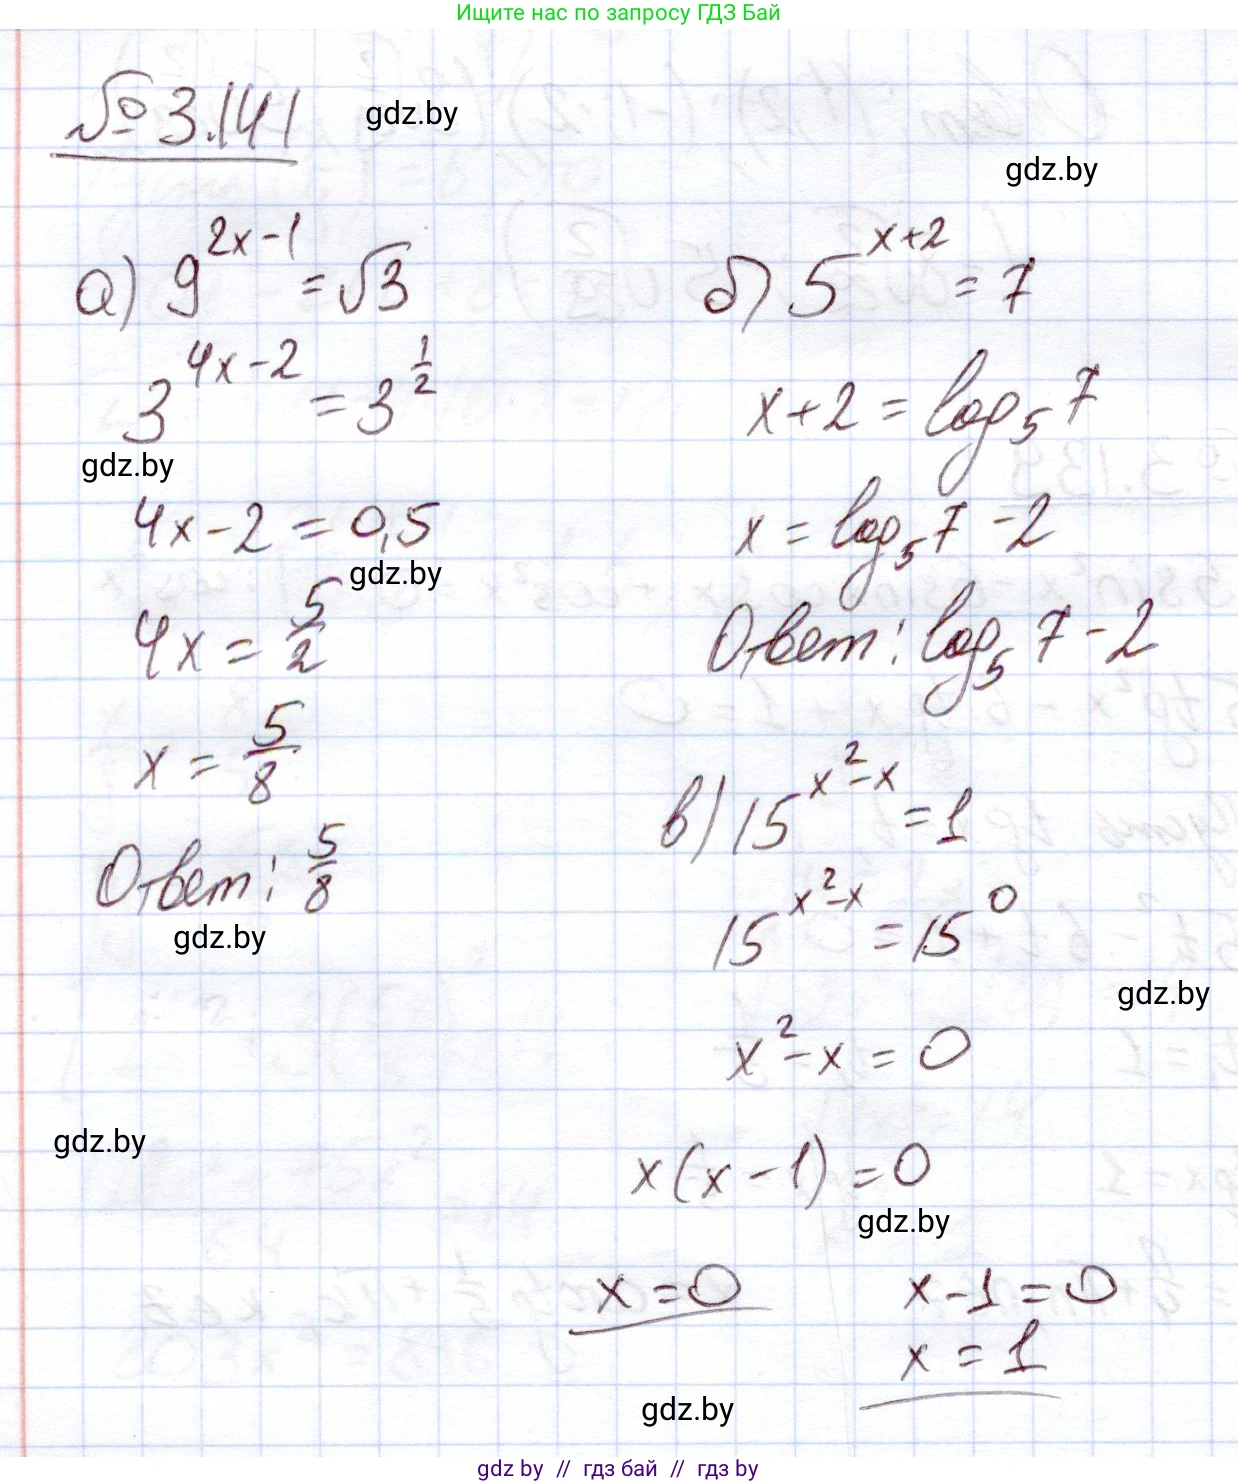 Ищите нас по запросу ГДЗ Бай
№ 3.141
gdz.by
gdz.by
а) 9^(2x-1) = √3
3^(4x-2) = 3^(1/2)
gdz.by
4x-2 = 0,5
gdz.by
4x = 5/2
x = 5/8
Ответ: 5/8
gdz.by
б) 5^(x+2) = 7
x+2 = log₅ 7
x = log₅ 7 - 2
Ответ: log₅ 7 - 2
в) 15^(x²-x) = 1
15^(x²-x) = 15^0
gdz.by
x² - x = 0
gdz.by
x(x-1) = 0
gdz.by
x = 0 x-1 = 0
x = 1
gdz.by
gdz by // гдз бай // гдз by